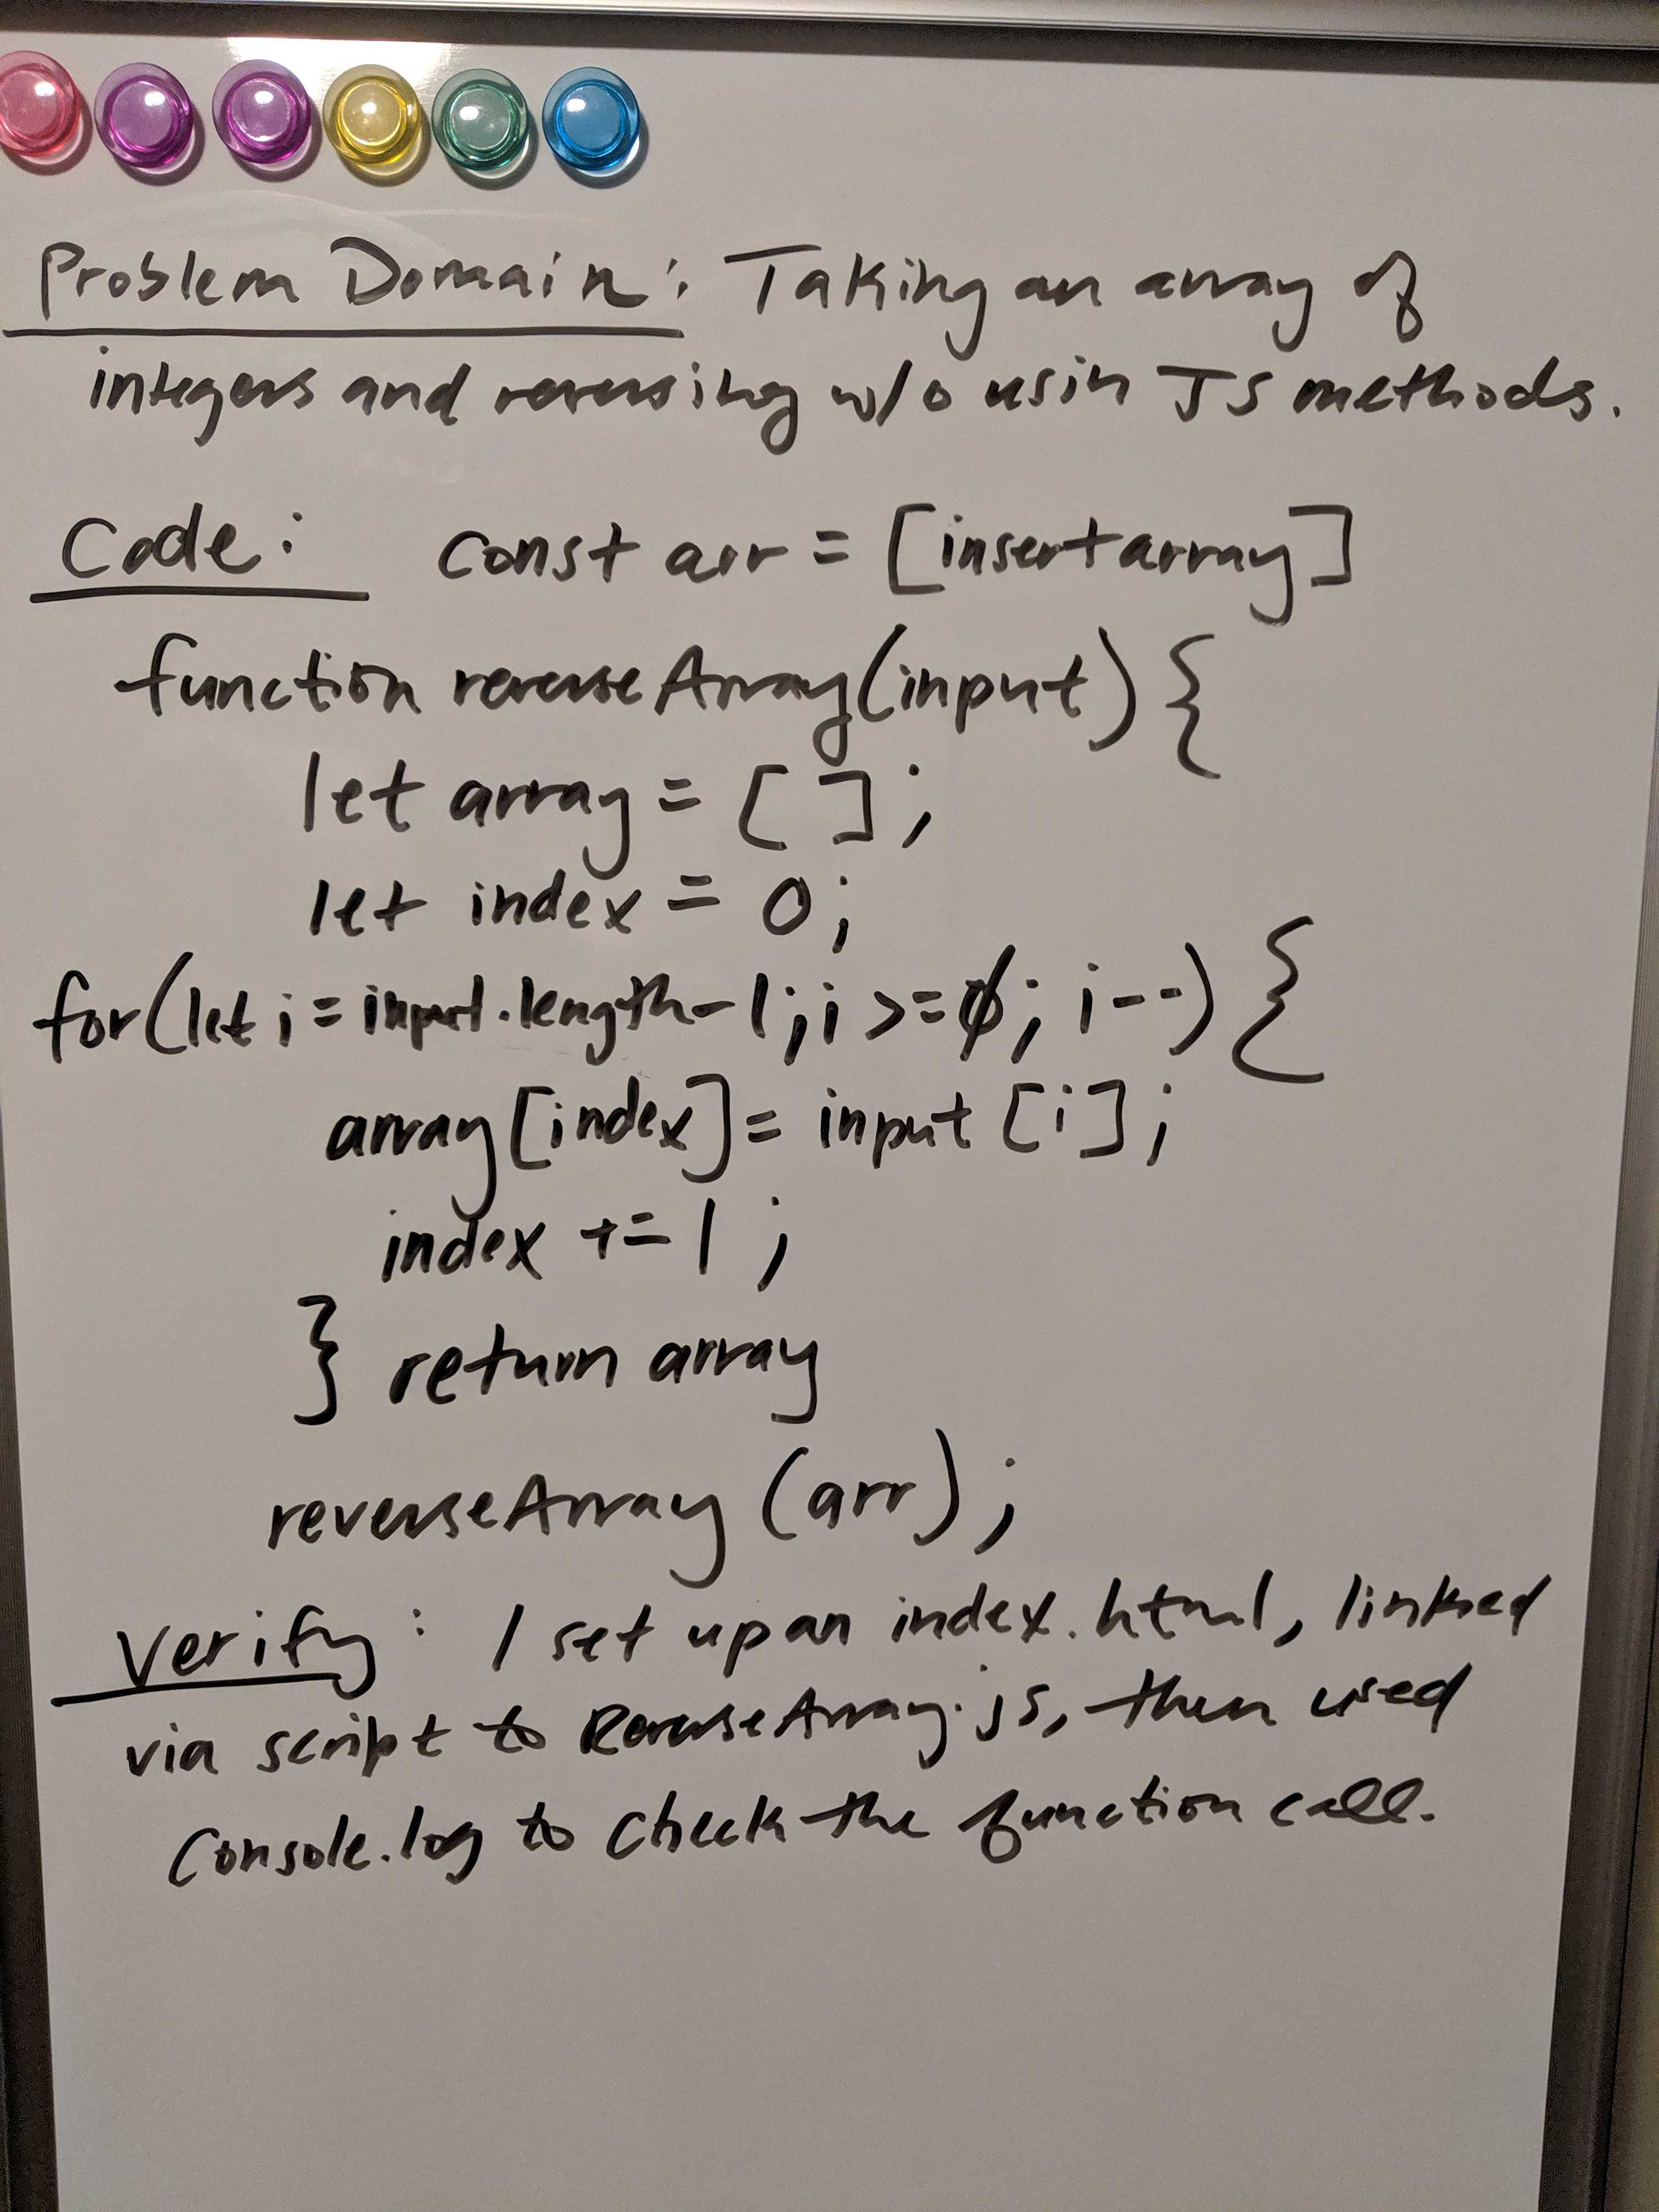 Problem Domain: Taking an array of
integers and reversing w/o usin JS methods.
Code: const arr = [insert array]
function reverseArray(input) {
let array = [ ];
let index = 0;
for(let i = input.length-1; i >= 0; i--) {
array[index] = input [i];
index += 1 ;
} return array
reverseArray (arr) ;
Verify: I set up an index.html, linked
via script to ReverseArray.js, then used
Console.log to check the function call.